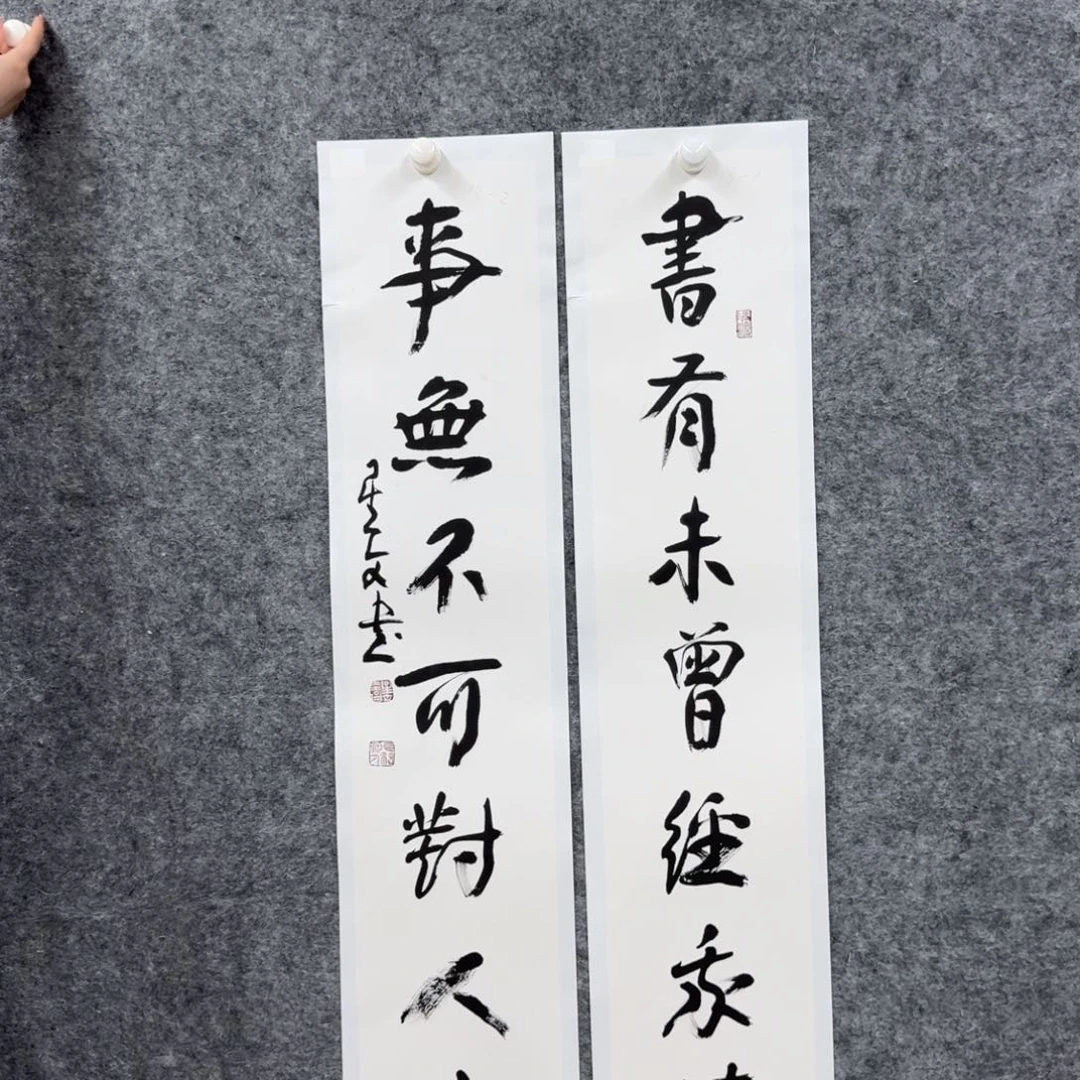 書有未曾經我
事無不可對人